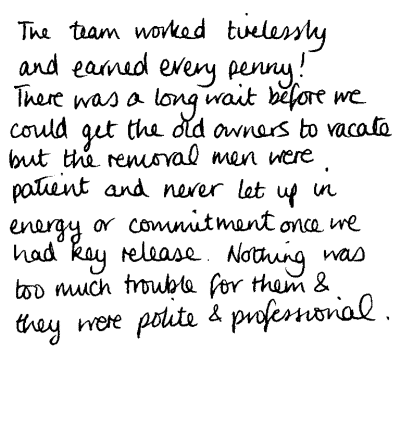 The team worked tirelessly
and earned every penny!
There was a long wait before we
could get the old owners to vacate
but the removal men were
patient and never let up in
energy or commitment once we
had key release. Nothing was
too much trouble for them &
they were polite & professional.